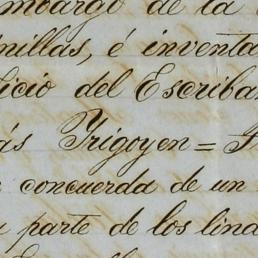 mbargo de la
nillas, é inventa
licio del Escriba
ás Yrigoyen = F
concuerda de un
parte de los lind